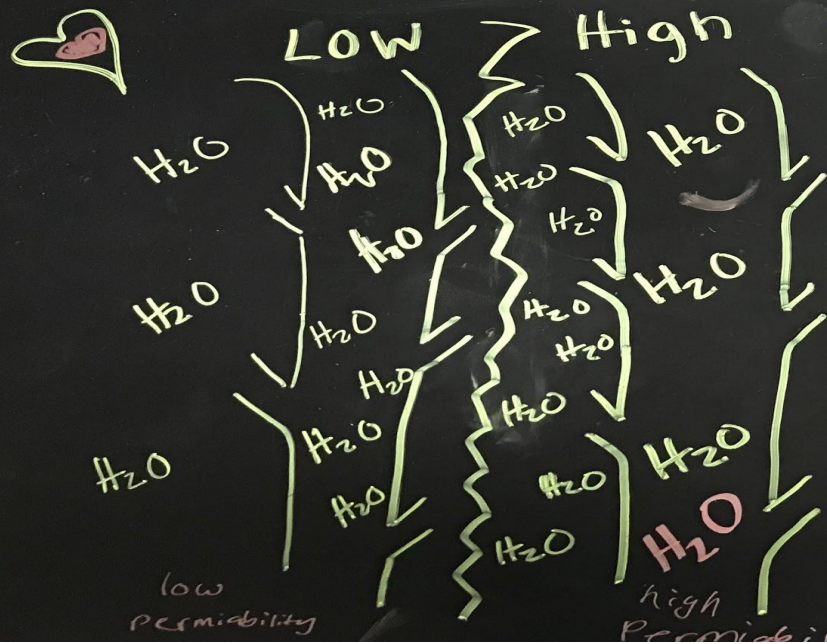 LOW High
H2O H2O H2O
H2O H2O H2O H2O
H2O H2O
H2O H2O H2O
H2O H2O
H2O H2O
H2O H2O
H2O H2O
H2O H2O
H2O H2O
low high
permiability